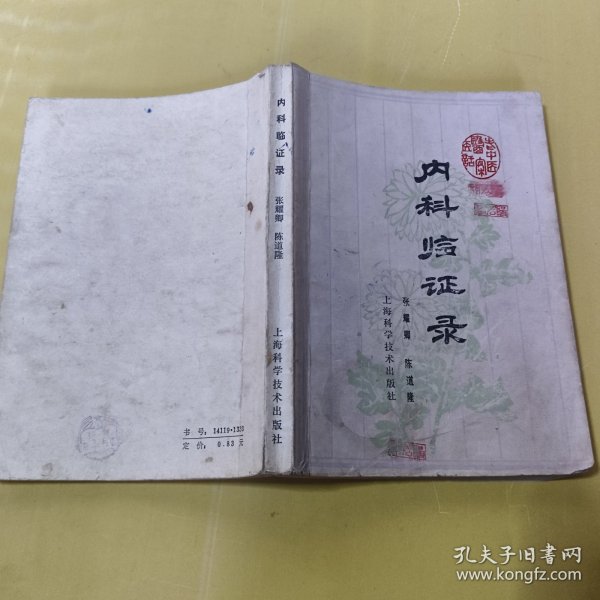 老中医
医案
医话
内科临证录
张耀卿 陈道隆
上海科学技术出版社
内科临证录
张耀卿 陈道隆
上海科学技术出版社
书号：14119·1333
定价：0.83元
孔夫子旧书网
www.kongfz.com